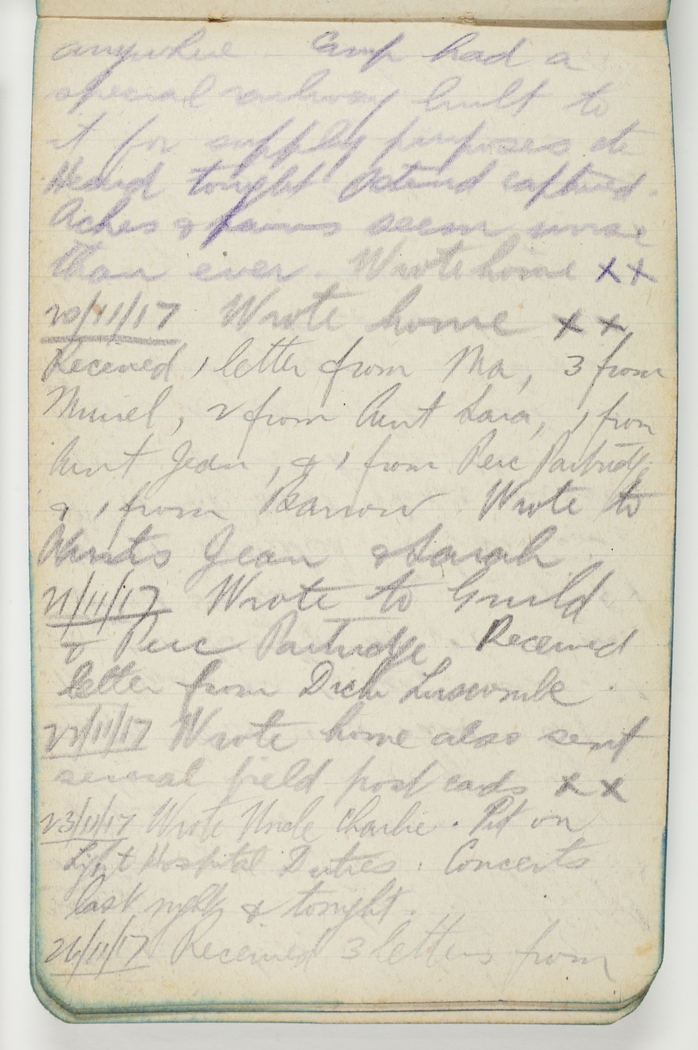 anywhere Camp had a
special railway built to
it for supply purposes etc
Heard tonight Ostend captured.
Aches & pains seem worse
than ever. Wrote home XX
20/11/17 Wrote home XX
Received 1 letter from Ma, 3 from
Muriel, 2 from Aunt Sara, 1 from
Aunt Jean, & 1 from Perc Partridge
& 1 from Barrow Wrote to
Aunts Jean & Sarah
21/11/17 Wrote to Guild
& Perc Partridge. Received
letter from Dick Luscombe.
22/11/17 Wrote home also sent
several field post cards XX
23/11/17 Wrote Uncle Charlie. Put on
Light Hospital Duties. Concerts
last night & tonight.
Received 3 letters from